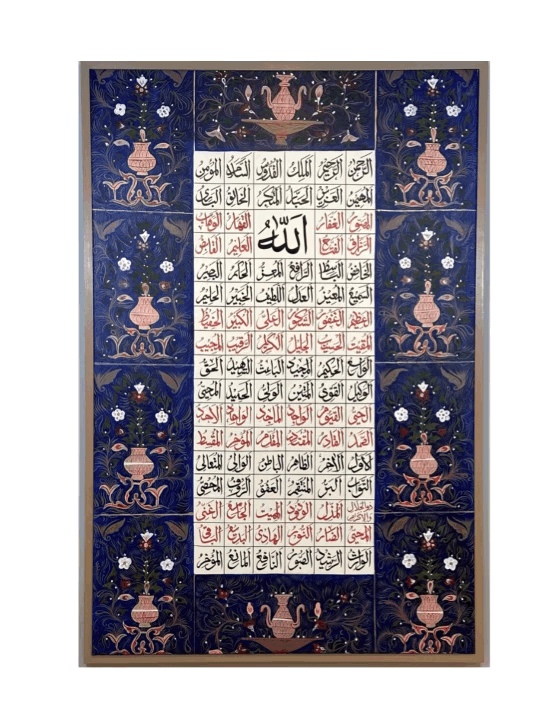 الرحمن الرحيم الملك القدوس السلام المؤمن
المهيمن العزيز الجبار المتكبر الخالق البارئ
المصور الغفار القهار الوهاب
الله
الرزاق الفتاح العليم القابض
الخافض الباسط الرافع المعز الحكم البصير
السميع العدل اللطيف الخبير الحليم
العظيم الغفور الشكور العلي الكبير الحفيظ
المقيت الحسيب الجليل الكريم الرقيب المجيب
الواسع الحكيم المجيد الباعث الشهيد الحق
الوكيل القوي المتين الولي
الحي القيوم الواجد الماجد الواحد الاحد
الصمد القادر المقتدر المقدم المؤخر المقسط
الاول الاخر الظاهر الباطن الوالي المتعالي
التواب البر المنتقم العفو الرؤف
ذوالجلال والاكرام المذل الودود المميت الجامع الغني
الضار النور الهادي البديع الباقي
الوارث الرشيد الصبور النافع المانع المؤخر